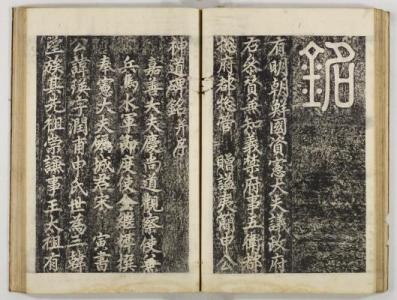 銘
有明朝鮮國資憲大夫議政府
右參贊兼知義禁府事五衛都
摠府都摠管 贈謚夷簡申公
神道碑銘并序
嘉善大夫慶尚道觀察使兼
兵馬水軍節度使金 撰
奉憲大夫礪城君宋 寅書
公諱瑛字潤甫申氏世爲三韓
望族其先祖崇謙事王太祖有